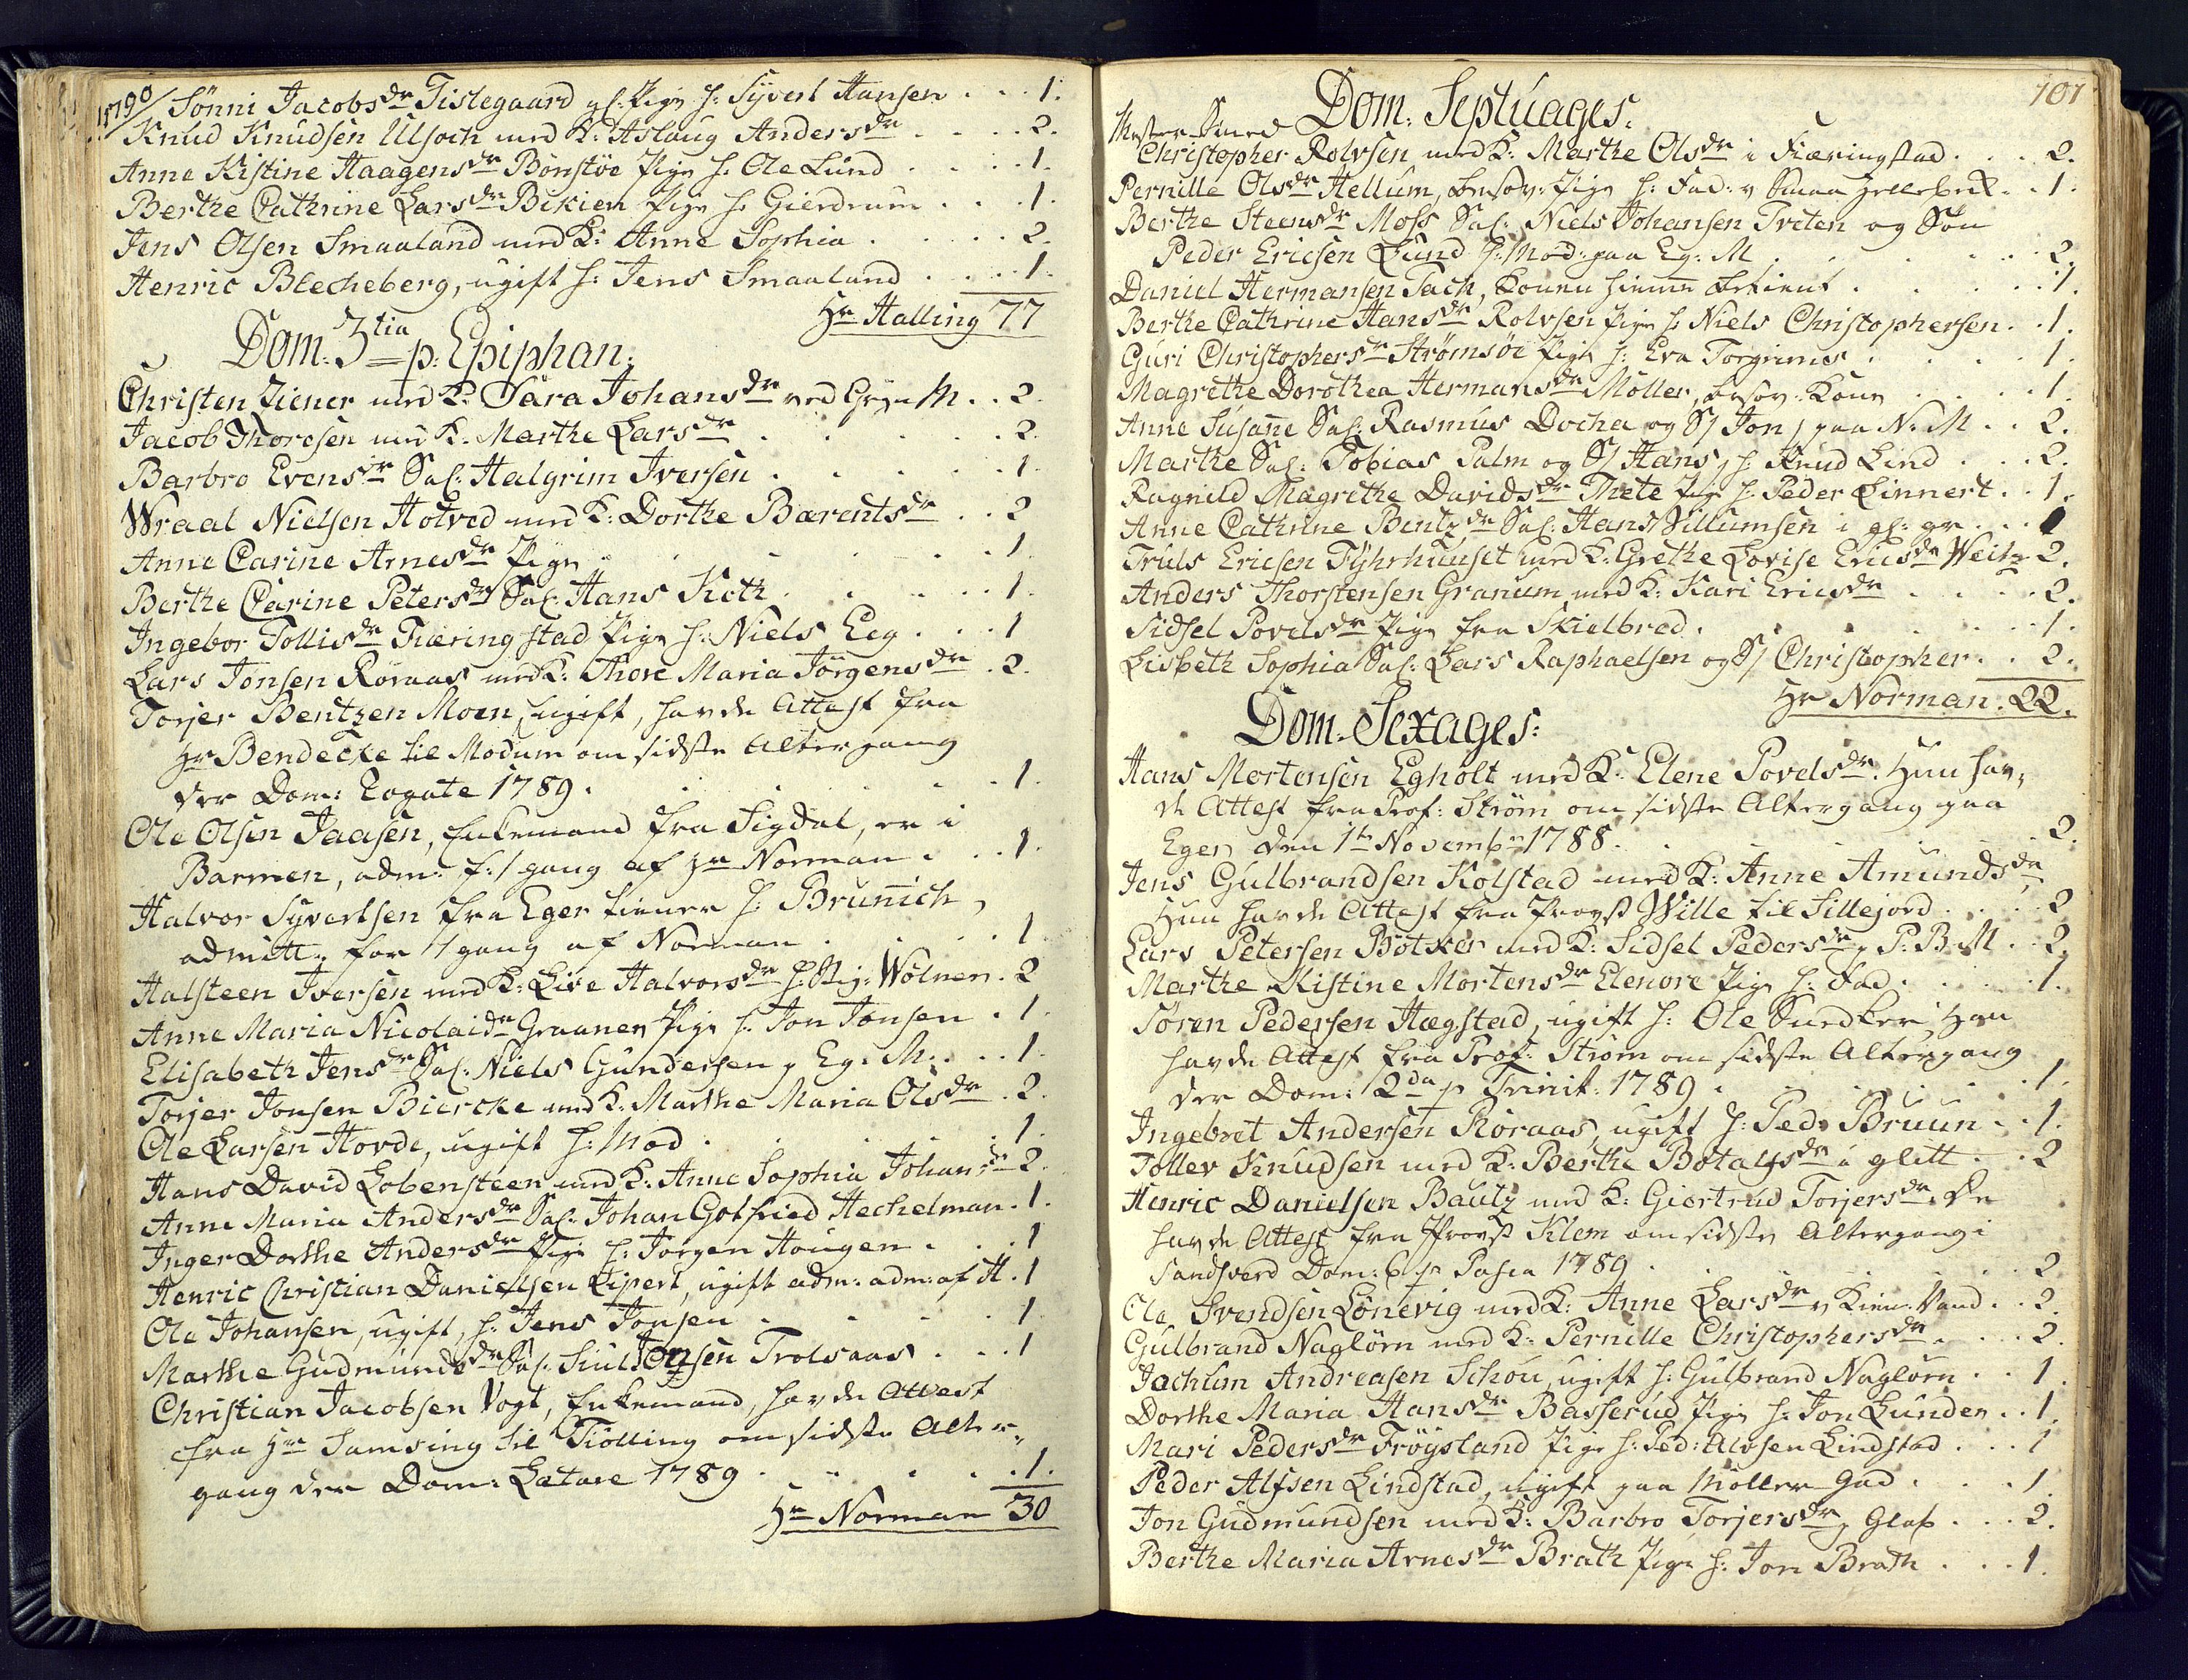 1790/ Sönni Jacobsdr Tislegaard gl: Pige h: Syvert Hansen . . . 1.
Knud Knudsen Ulsoch med K: Aslaug Andersdr . . . . 2.
Anne Kistine Haagensdr Bönstöe Pige h: Ole Lund . . . . 1.
Berthe Cathrine Larsdr Bekien Pige h: Gierdrum . . . 1.
Jens Olsen Smaaland med K: Anne Sophia . . . . . 2.
Henric Blecheberg, ugift h: Jens Smaaland . . . . 1.
Hr Halling 77
Dom. 3tia p: Epiphan:
Christen Ziener med K: Sara Johansdr ved M . . 2.
Jacob Thoresen med K: Marthe Larsdr . . . . . . 2.
Barbro Evensdr Sal: Halgrim Iversen . . . . . 1.
Wraal Nielsen Hotved med K: Dorthe Bærentsdr . . 2
Anne Carine Arnesdr Pige . . . . . . 1.
Berthe Carine Petersdr Sal: Hans Koth . . . . . 1.
Ingebor Tollisdr Fiæringstad Pige h: Niels Eeg . . . . 1
Lars Jonsen Röraas med K: Thore Maria Jörgensdr . 2.
Torjer Bentzen Moen, ugift, havde Attest fra
Hr Bendecke til Modum om sidste Altergang
der Dom: Rogate 1789 . . . . . . 1.
Ole Olsen Jaasen, Enkemand fra Sigdal, er i
Barmen, adm: f: 1 gang af Hr Norman . . . 1.
Halvor Syvertsen fra Eger tiener h: Brunich,
admitt: for 1 gang af Norman . . . . 1
Halsteen Iversen med K: Live Halvorsdr h: Wölner . 2
Anne Maria Nicolaidr Graanes Pige h: Jon Jonsen . 1.
Elisabeth Jensdr Sal: Niels Gundersen p Eg: M . . . 1.
Torjer Jonsen Biercke med K: Marthe Maria Olsdr . 2.
Ole Larsen Hovde, ugift h: Mod . . . . . 1.
Hans David Lobensteen med K: Anne Sophia Johansdr 2.
Anne Maria Andersdr Sal: Johan Gotfried Hechelman . 1.
Inger Dorthe Andersdr Pige h: Jörgen Haugen . . . 1
Henric Christian Danielsen Lipert, ugift adm: adm: af H . 1
Ole Johansen, ugift, h: Jens Jonsen . . . . . 1
Marthe Gudmundsdr Sal: Jonsen Trolsaas . . . 1
Christian Jacobsen Vogt, Enkemand, havde Attest
fra Hr Samsing til Tiölling om sidste Alter-
gang der Dom: Lætare 1789 . . . . . 1.
Hr Norman 30
107
Dom: Septuages:
Mester Smed
Christopher Rolvsen med K: Marthe Olsdr i Fiæringstad . . . 2.
Pernille Olsdr Hellum, besov: Pige h: Fad: v Smaa Hellebek . . 1.
Berthe Steensdr Moss Sal: Niels Johansen Tveten og Sön
Peder Ericsen Lund h: Mod: paa Eg: M . . . . . . 2.
Daniel Hermansen Tach, Konen hiemme betient . . . . . . 1.
Berthe Cathrine Hansdr Rolvsen Pige h: Niels Christophersen . . 1.
Guri Christophersdr Strömsöe Pige h: Eva Torgrimes . . . . 1.
Magrethe Dorothea Hermansdr Möller, besov: Kone . . . . 1.
Anne Susane Sal: Rasmus Docka og S/ Jon / paa N: M . . 2.
Marthe Sal: Tobias Palm og S/ Hans / h: Knud Lind . . . 2.
Ragnild Magrethe Davidsdr Thete Pige h: Peder Linnert . . 1.
Anne Cathrine Bentzdr Sal: Hans Villumsen i gl: gr . . . 1
Truls Ericsen Fyhrhuuset med K: Grethe Lovise Ericsdr Weitz 2.
Anders Thorstensen Granum med K: Kari Ericsdr . . . . 2.
Sidsel Povelsdr Pige fra Skielbred . . . . . . . 1.
Lisbeth Sophia Sal: Lars Raphaelsen og S/ Christopher . . 2.
Hr Norman . 22.
Dom. Sexages:
Hans Mortensen Egholt med K: Elene Povelsdr. Hun hav-
de Attest fra Prof: Ström om sidste Altergang paa
Eger den 1te Novembr 1788 . . . . . . 2.
Jens Gulbrandsen Kolstad med K: Anne Amundsdr
Hun havde Attest fra Provst Wille til Sillejord . . . . 2
Lars Petersen Bötker med K: Sidsel Pedersdr p P: B: M . . 2.
Marthe Kistine Mortensdr Elenore Pige h: Fad . . . . 1.
Sören Pedersen Hægstad, ugift h: Ole Snedker, Han
havde Attest fra Prof: Ström om sidste Altergang
der Dom: 2da p Trinit: 1789 . . . . . . . 1.
Ingebret Andersen Röraas, ugift h: Ped: Bruun . . 1.
Tollev Knudsen med K: Berthe Botalfsdr i glitt . . . 2
Henric Danielsen Bautz med K: Giertrud Torjersdr. De
havde Attest fra Provst Klem om sidste Altergang i
Sandsverd Dom: 6 p Pasca 1789 . . . . . . 2.
Ole Svendsen Lönevig med K: Anne Larsdr v Kien: Vand . . 2.
Gulbrand Naglörn med K: Pernille Christophersdr . . . . 2.
Jochum Andreasen Schou, ugift h: Gulbrand Naglörn . . 1.
Dorthe Maria Hansdr Basserud Pige h: Jon Lunden . . 1.
Mari Pedersdr Fröysland Pige h: Ped: Alvsen Lindstad . . . 1
Peder Alfsen Lindstad, ugift paa Möller Gad . . . . 1.
Jon Gudmundsen med K: Barbro Torjersdr p Glas . . . 2.
Berthe Maria Arnesdr Brath Pige h: Jon Brath . . . 1.